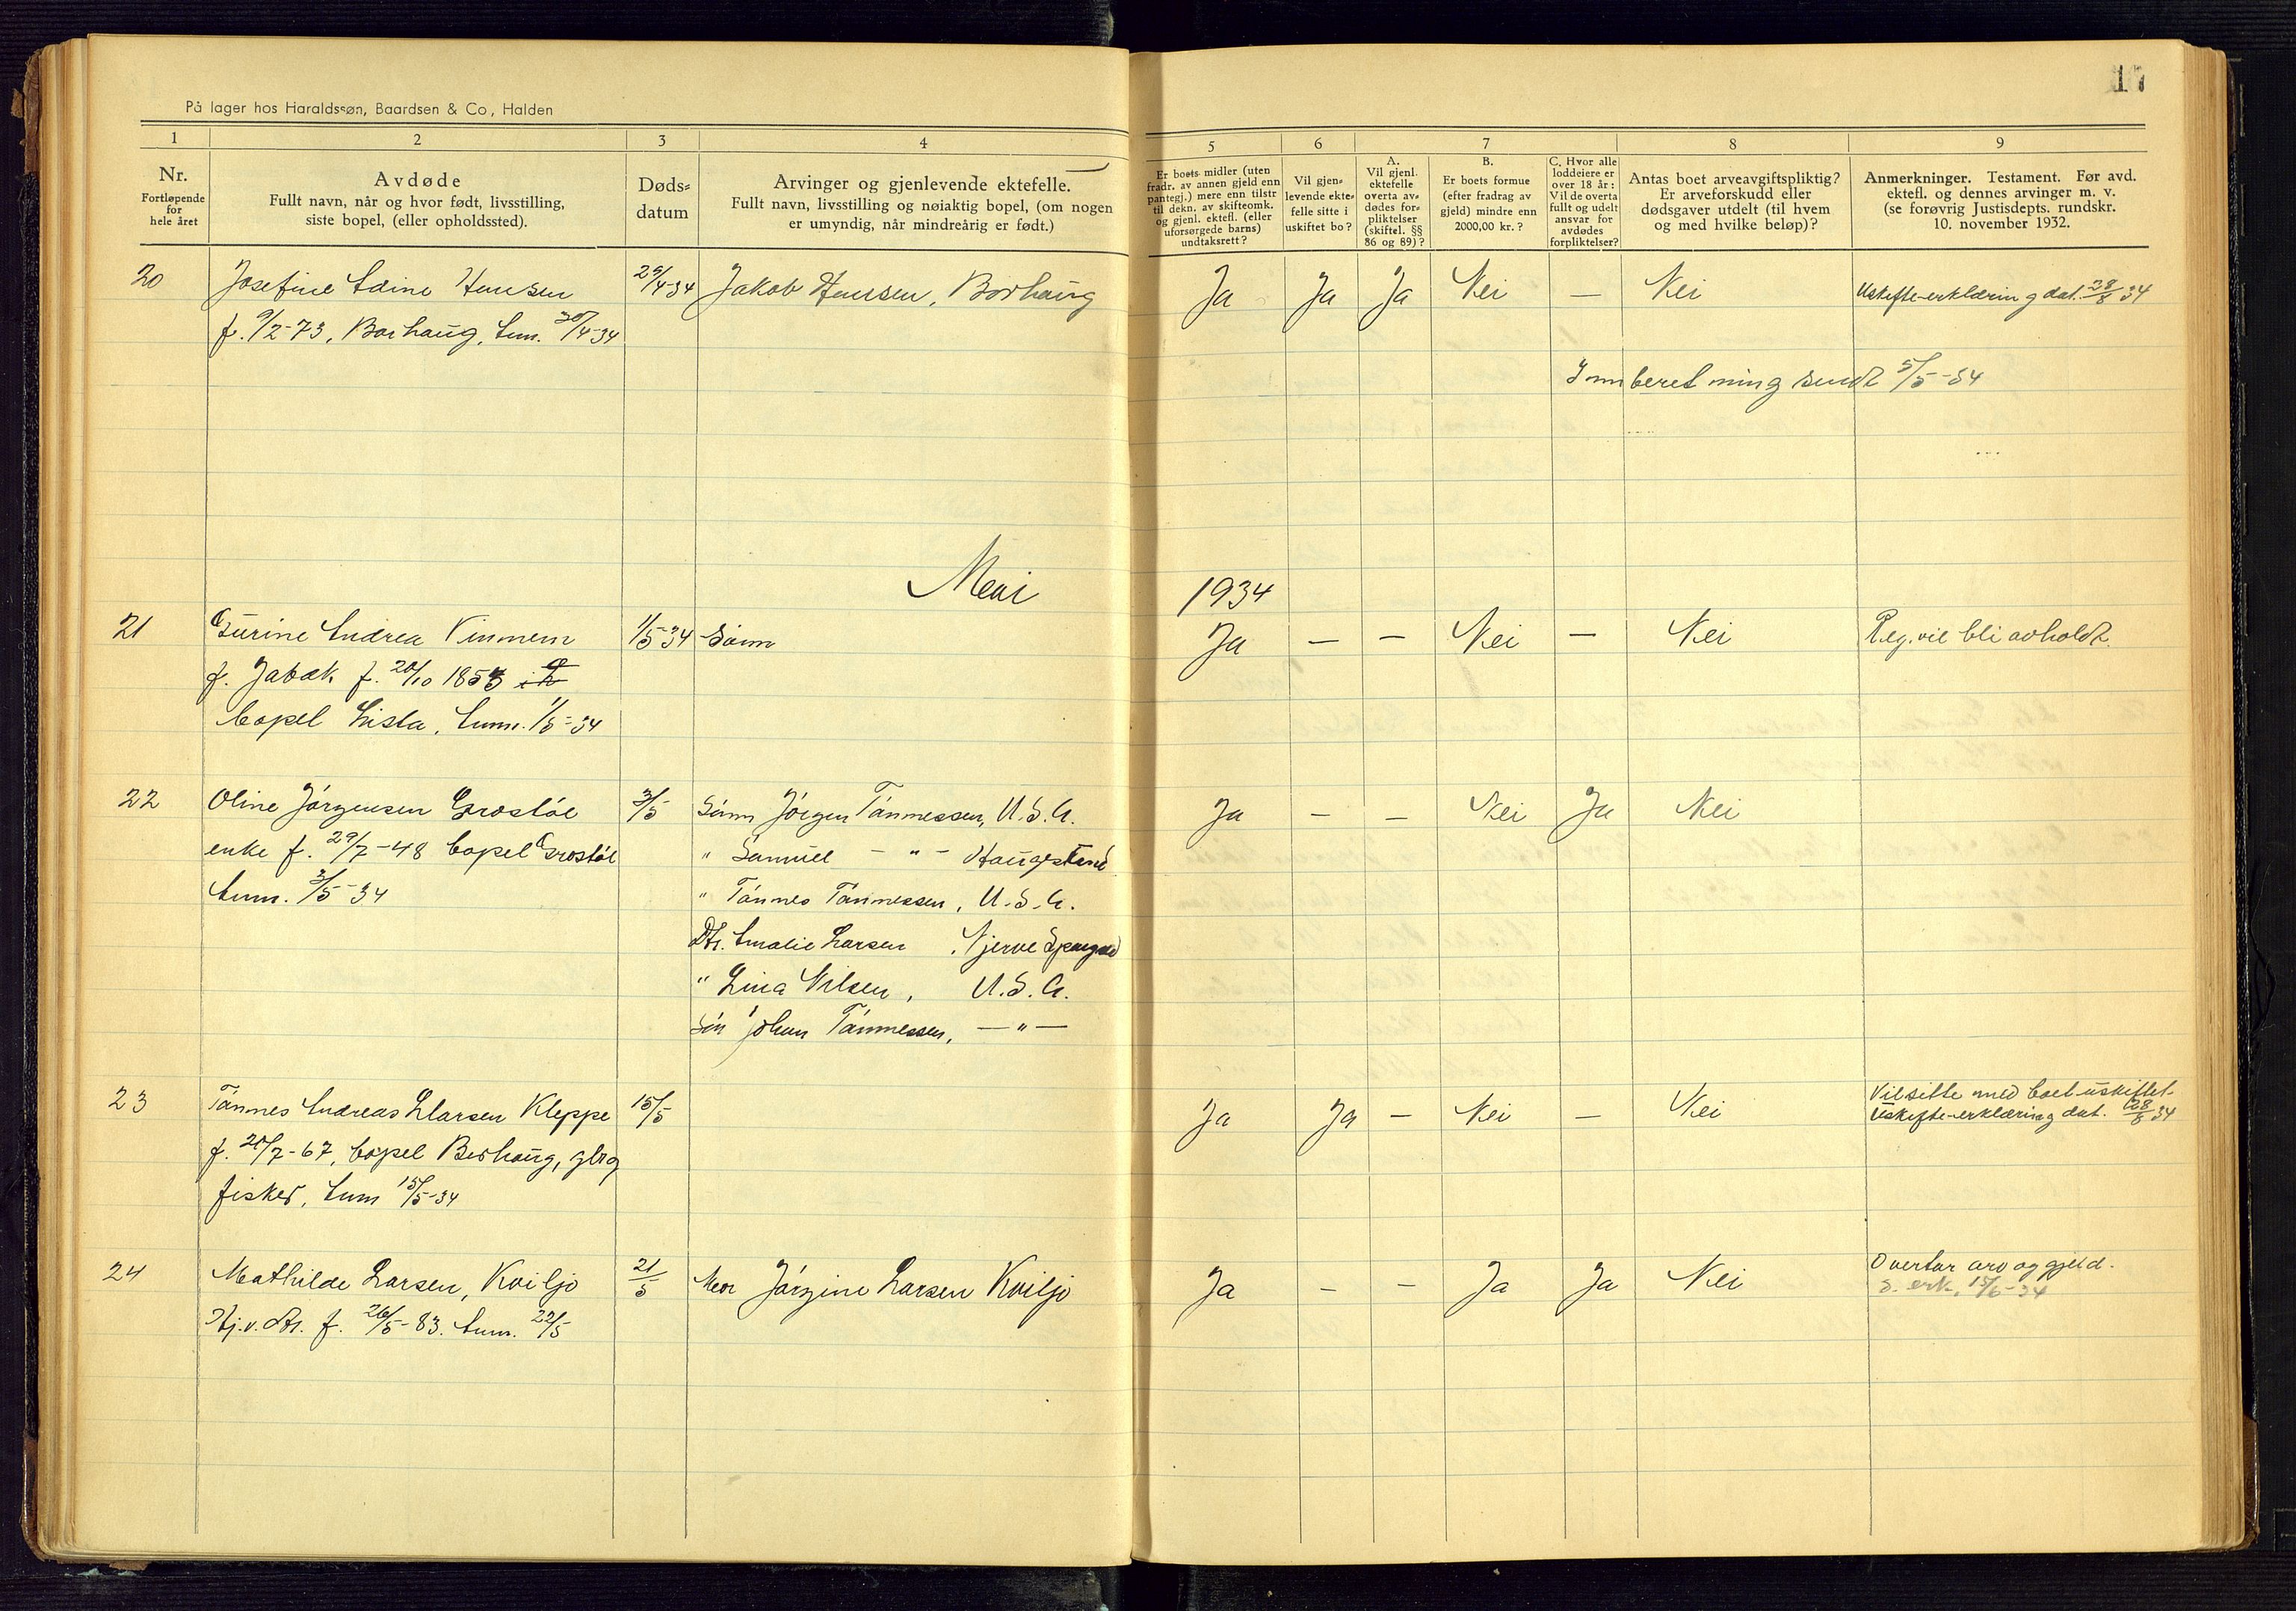 17
På lager hos Haraldssøn, Baardsen & Co, Halden
1 2 3 4 5 6 7 8 9
Nr.
Fortløpende
for
hele året
Avdøde
Fullt navn, når og hvor født, livsstilling,
siste bopel, (eller opholdssted).
Døds-
datum
Arvinger og gjenlevende ektefelle.
Fullt navn, livsstilling og nøiaktig bopel, (om nogen
er umyndig, når mindreårig er født.)
Er boets midler (uten
fradr. av annen gjeld enn
pantegj.) mere enn tilstr
til dekn. av skifteomk.
og gjenl. ektefl. (eller
uforsørgede barns)
undtaksrett?
Vil gjen-
levende ekte-
felle sitte i
uskiftet bo?
A.
Vil gjenl.
ektefelle
overta av-
dødes for-
pliktelser
(skiftel. §§
86 og 89)?
B.
Er boets formue
(efter fradrag av
gjeld) mindre enn
2000,00 kr.?
C. Hvor alle
loddeiere er
over 18 år:
Vil de overta
fullt og udelt
ansvar for
avdødes
forpliktelser?
Antas boet arveavgiftspliktig?
Er arveforskudd eller
dødsgaver utdelt (til hvem
og med hvilke beløp)?
Anmerkninger. Testament. Før avd.
ektefl. og dennes arvinger m. v.
(se forøvrig Justisdepts. rundskr.
10. november 1932.
20 Josefine Edine Hansen 29/4-34 Jakob Hansen, Borhaug Ja Ja Ja Nei — Nei Uskifte-erklæring dat. 28/8 34
f. 9/2-73, Borhaug, Anm. 30/4-34
Innberetning sendt 5/5-34
Mai 1934
21 Gurine Andrea Vinnem 1/5-34 Sønn Ja — — Nei — Nei Reg. vil bli avholdt.
f. Jabæk f. 20/10 1853
bopel Lista, Anm. 1/5-34
22 Oline Jørgensen Grostøl 3/5 Sønn Jørgen Tønnessen, U.S.A. Ja — — Nei Ja Nei
enke f. 29/7-48 bopel Grostøl " Samuel — " — Haugestrand
Anm. 3/5-34 " Tønnes Tønnessen, U.S.A.
Dtr. Amalie Larsen, Njerve Spangereid
" Lina Nilsen, U.S.A.
Søn Johan Tønnessen, — " —
23 Tønnes Andreas Larsen Kleppe 15/5 Ja Ja — Nei — Nei Vil sitte med boet uskiftet.
Uskifte-erklæring dat. 28/8 34
f. 20/7-67, bopel Borhaug, gbrg
fisker, Anm 15/5-34
24 Mathilde Larsen, Kviljo 21/5 Mor Jørgine Larsen Kviljo Ja — — Ja Ja Nei Overtar arv og gjeld.
S. erk. 15/6-34
Hj.v. dtr. f. 26/5-83. Anm. 22/5